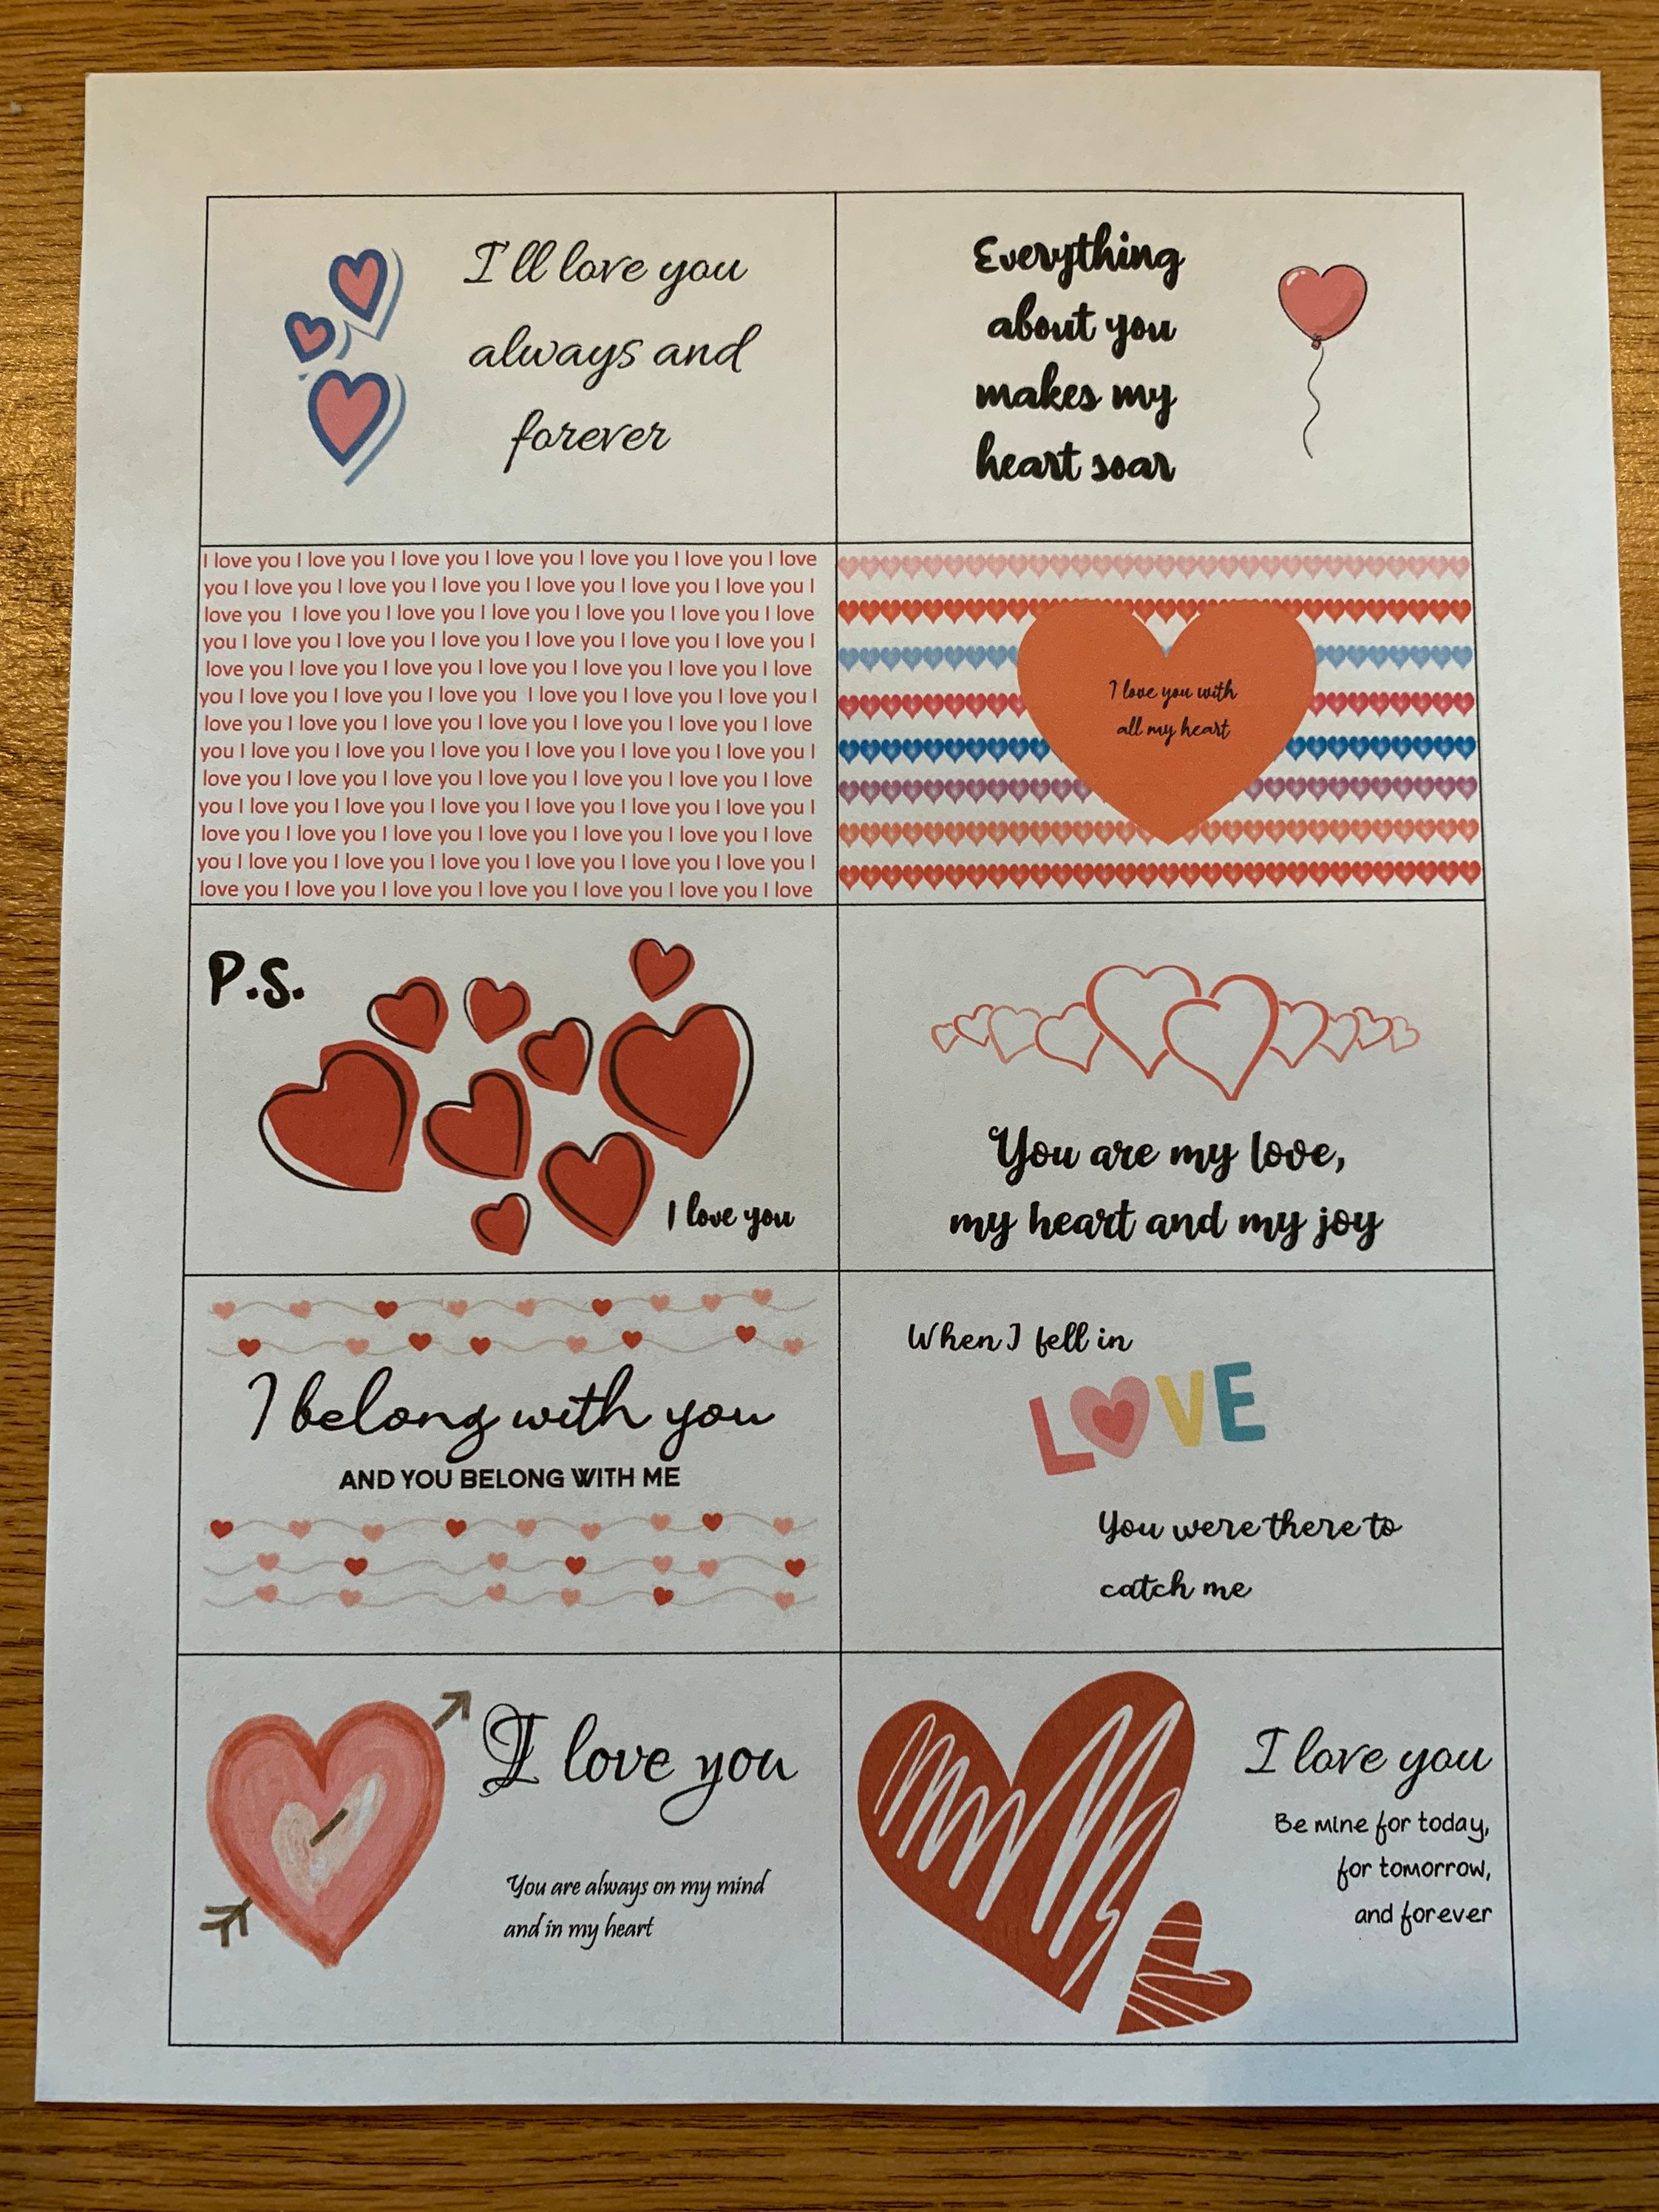 I'll love you
always and
forever
Everything
about you
makes my
heart soar
I love you I love you I love you I love you I love you I love you I love
you I love you I love you I love you I love you I love you I love you I
love you  I love you I love you I love you I love you I love you I love
you I love you I love you I love you I love you I love you I love you I
love you I love you I love you I love you I love you I love you I love
you I love you I love you I love you  I love you I love you I love you I
love you I love you I love you I love you I love you I love you I love
you I love you I love you I love you I love you I love you I love you I
love you I love you I love you I love you I love you I love you I love
you I love you I love you I love you I love you I love you I love you I
love you I love you I love you I love you I love you I love you I love
you I love you I love you I love you I love you I love you I love you I
love you I love you I love you I love you I love you I love you I love
I love you with
all my heart
P.S.
I love you
You are my love,
my heart and my joy
I belong with you
AND YOU BELONG WITH ME
When I fell in
LOVE
You were there to
catch me
I love you
You are always on my mind
and in my heart
I love you
Be mine for today,
for tomorrow,
and forever